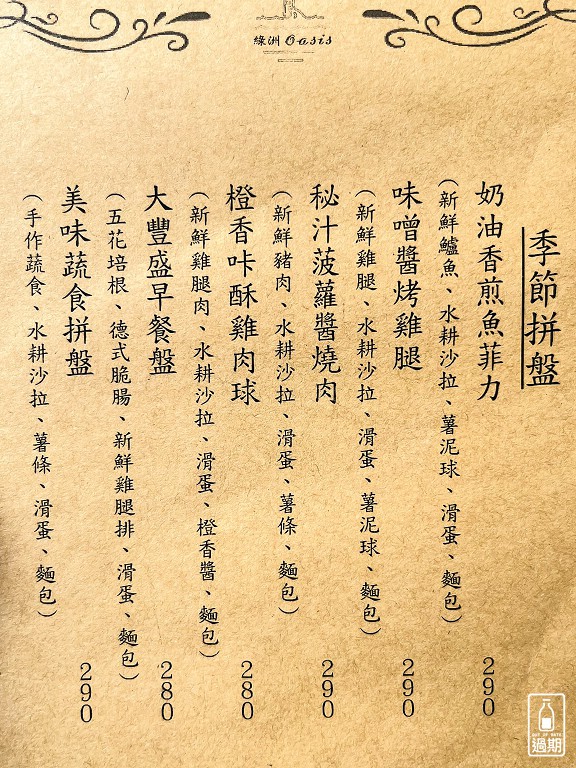 綠洲 Oasis
季節拼盤
奶油香煎魚菲力 290
(新鮮鱸魚、水耕沙拉、薯泥球、滑蛋、麵包)
味噌醬烤雞腿 290
(新鮮雞腿、水耕沙拉、滑蛋、薯泥球、麵包)
秘汁菠蘿醬燒肉 290
(新鮮豬肉、水耕沙拉、滑蛋、薯條、麵包)
橙香咔酥雞肉球 280
(新鮮雞腿肉、水耕沙拉、滑蛋、橙香醬、麵包)
大豐盛早餐盤 280
(五花培根、德式脆腸、新鮮雞腿排、滑蛋、麵包)
美味蔬食拼盤 290
(手作蔬食、水耕沙拉、薯條、滑蛋、麵包)
OUT OF DATE
過期